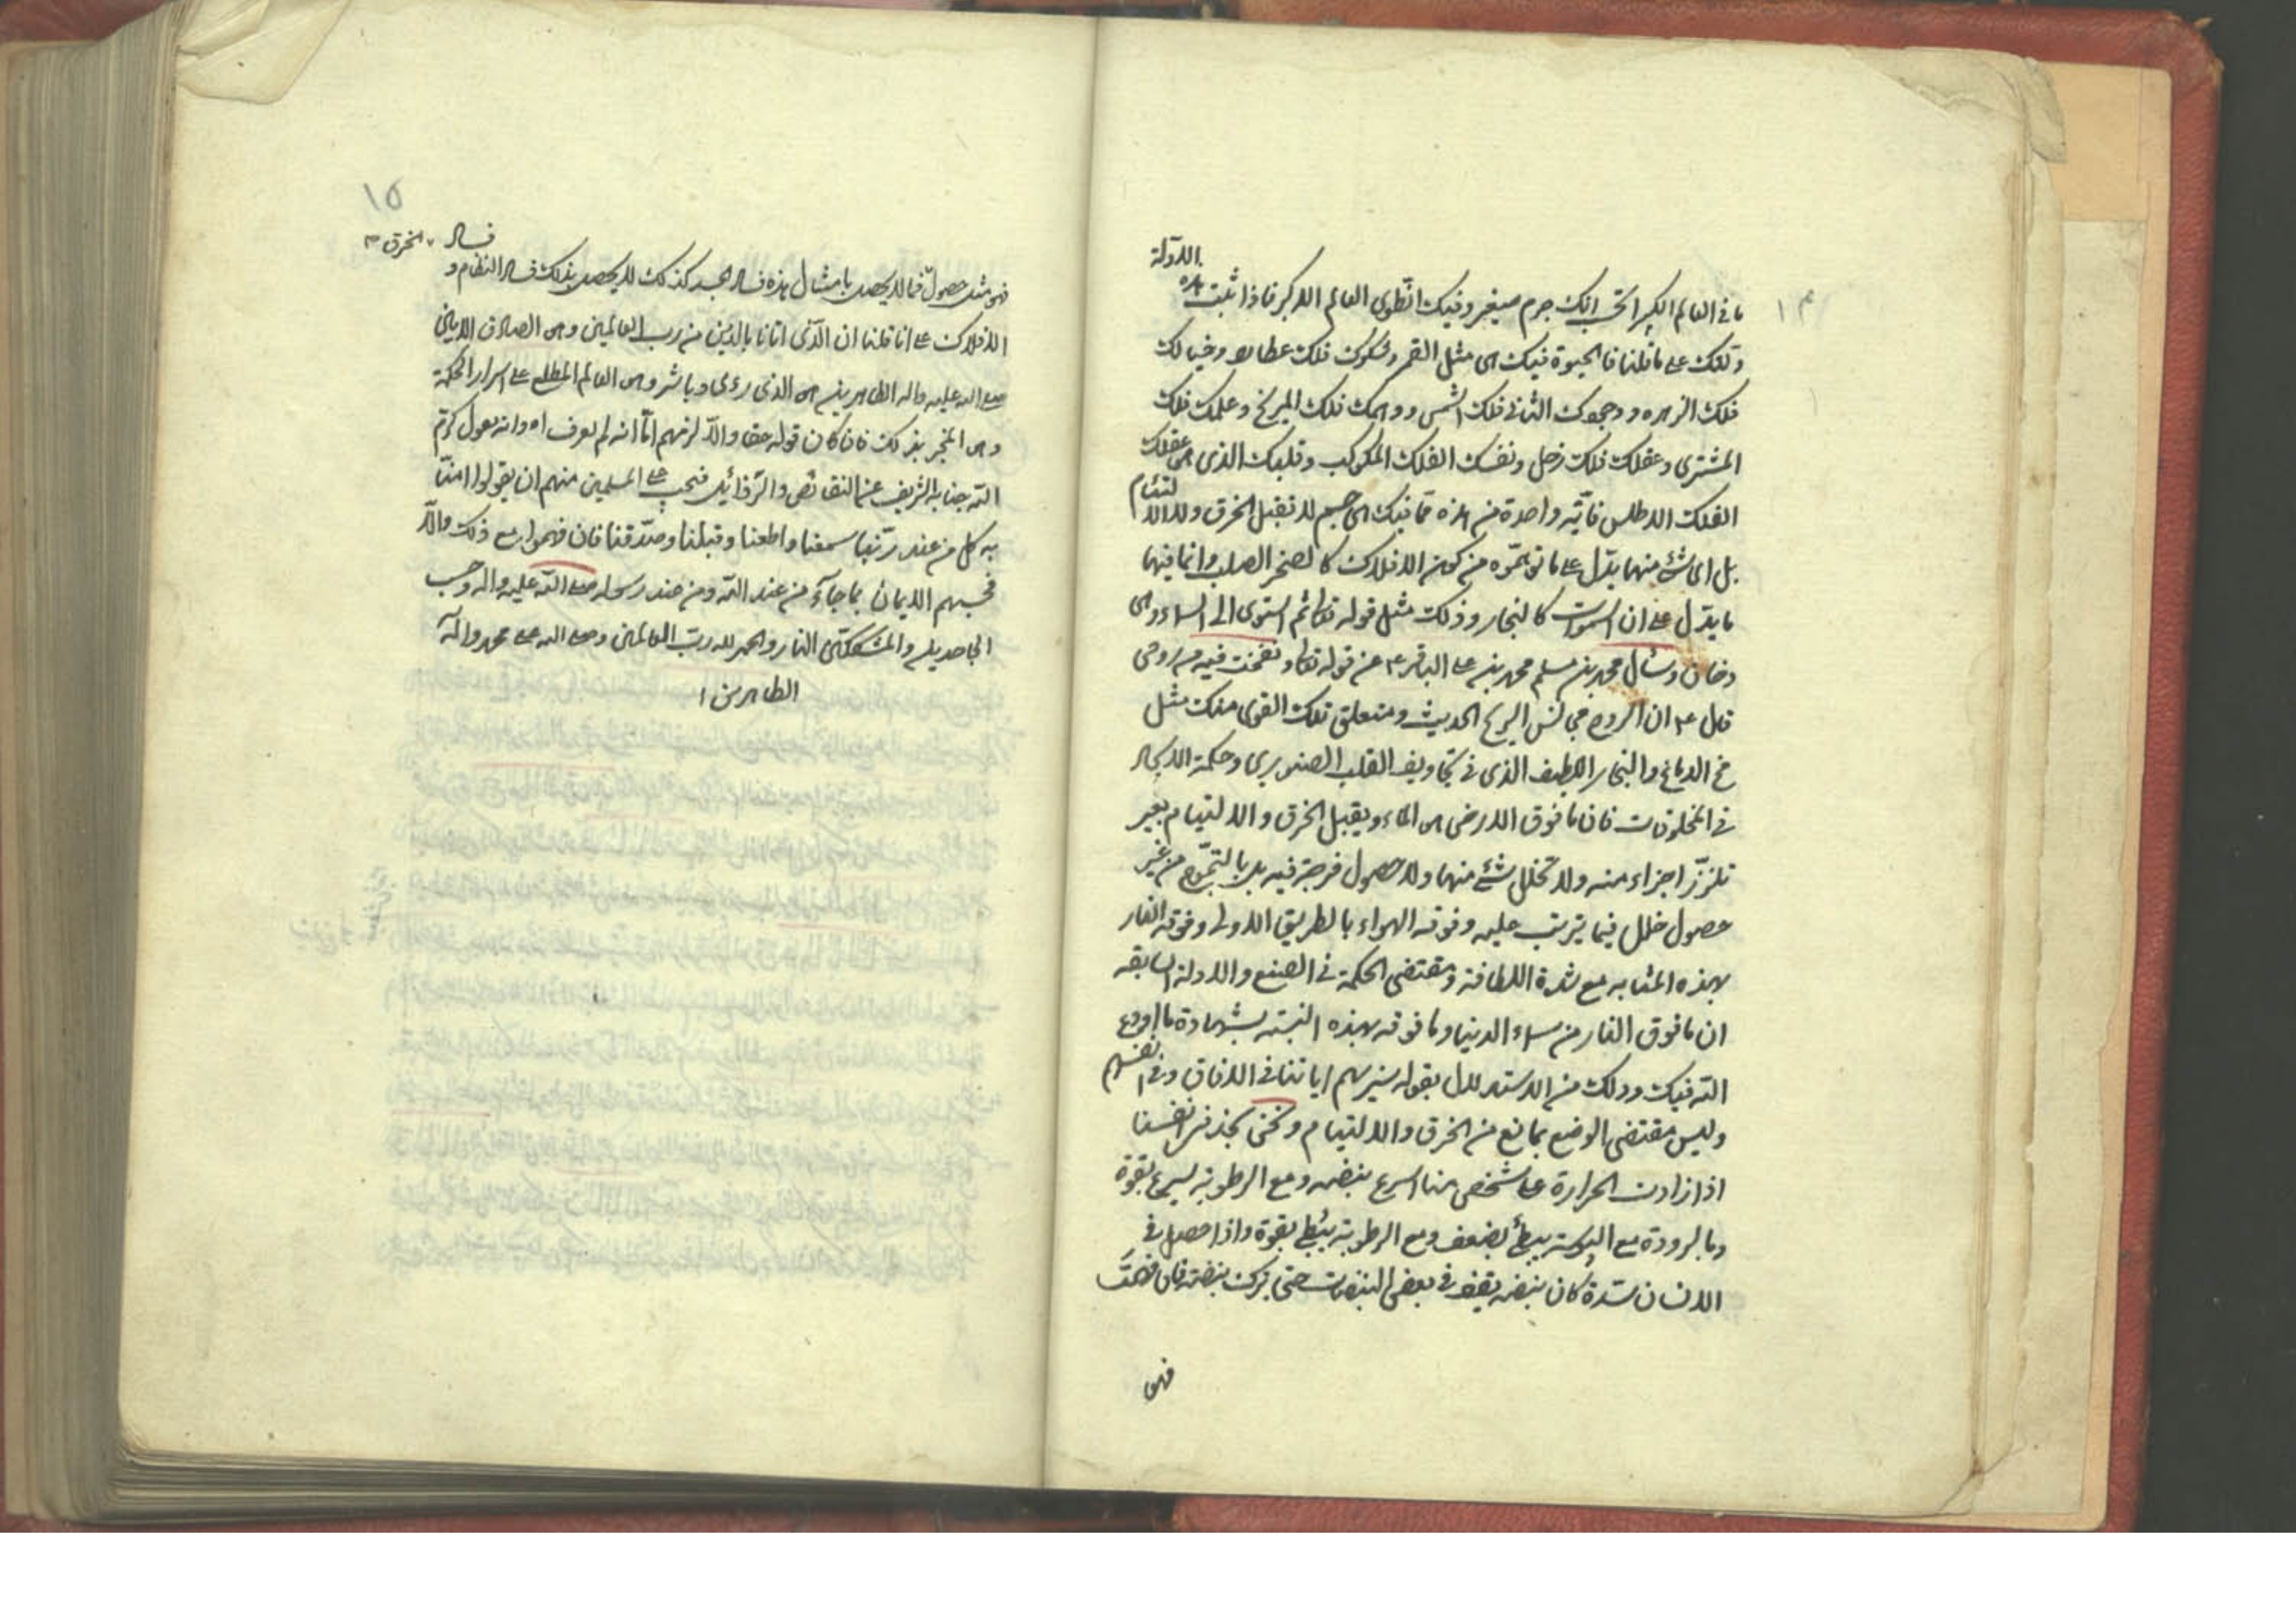 ١٤
ما في العالم الكبير اتحسب انك جرم صغير وفيك انطوى العالم الاكبر فاذا ثبت هذه الادلة
وتلك على ما قلنا فالحيوة فيك هي مثل القمر وفكرك فلك عطارد وخيالك
فلك الزهره ووجودك الثاني فلك الشمس ووهمك فلك المريخ وعلمك فلك
المشتري وعقلك فلك زحل ونفسك الفلك المكوكب وقلبك الذي هو عقلك
الفلك الاطلس فاية واحدة من هذه مما فيك هي جسم لا تقبل الخرق والالتئام
بل اي شئ منها يدل على ما توهموه من كون الافلاك كالصخر الصلب وانما فيها
ما يدل على ان السموات كالبخار وذلك مثل قوله تعالى ثم استوى الى السماء وهي
دخان وسأل محمد بن مسلم محمد بن علي الباقر ع عن قوله تعالى ونفخت فيه من روحي
قال ع ان الروح مجانس للريح الحديث ومتعلق تلك القوى منك مثل
مخ الدماغ والبخار اللطيف الذي في تجاويف القلب الصنوبري وحكمة الايجاد
في المخلوقات فان ما فوق الارض هو الماء ويقبل الخرق والالتيام بغير
تلزز اجزاء منه ولا تخلل شئ منها ولا حصول فرجة فيه بل بالتموج من غير
حصول خلل فيما يترتب عليه وفوقه الهواء بالطريق الاولى وفوقه النار
بهذه المثابه مع شدة اللطافة ومقتضى الحكمة في الصنع والادلة السابقه
ان ما فوق النار من سماء الدنيا وما فوقه بهذه النسبة بشهادة ما اودع
الله فيك ودلك من الاستدلال بقوله سنريهم اياتنا في الافاق وفي انفسهم
وليس مقتضى الوضع بمانع من الخرق والالتيام ونحن نجد في انفسنا
اذا زادت الحرارة على شخص منا اسرع نبضه ومع الرطوبة يسرع بقوة
وبالبرودة مع اليبوسة يبطئ بضعف ومع الرطوبة يبطئ بقوة واذا حصل في
الانسان سدة كان نبضه يقف في بعض النبضات حتى يترك نبضة فان فهمت
فهو
١٥
فهو مثل حصول فكما لا يحصل بامثال هذه فساد الجسد كذلك لا يحصل بذلك فساد النظام و فساد
الخرق م
الافلاك على انا قلنا ان الذي اتانا بالدين من رب العالمين وهو الصادق الامين
صلى الله عليه واله الطاهرين هو الذي رقى وباشر وهو العالم المطلع على اسرار الحكمة
وهو المخبر بذلك فان كان قوله حقا والا لزمهم اما انه لم يعرف اه وانه يقول كرم
الله جنابه الشريف عن النقائص والرذائل فيجب على المسلمين منهم ان يقولوا امنا
به كل من عند ربنا سمعنا واطعنا وقبلنا وصدقنا فان فهموا ذلك والا
فحسبهم الايمان بما جاء من عند الله ومن عند رسوله صلى الله عليه واله وحسب
الجاحدين والمشككين النار والحمد لله رب العالمين وصلى الله على محمد واله
الطاهرين